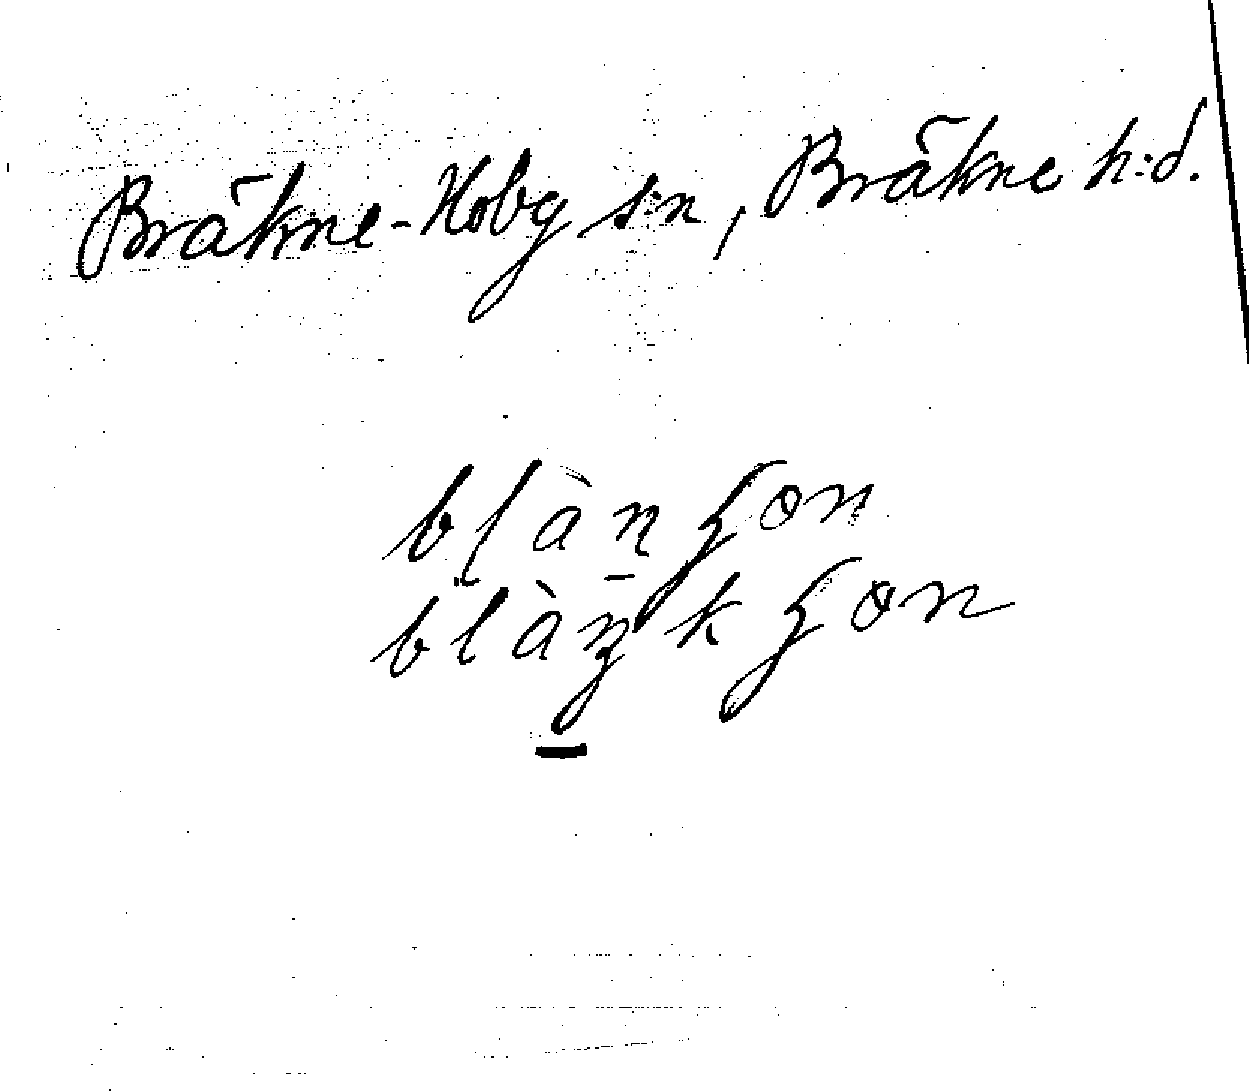 Bräkne-Hoby s:n, Bräkne h:d.
blàn̠ʒon
blàŋkʒon